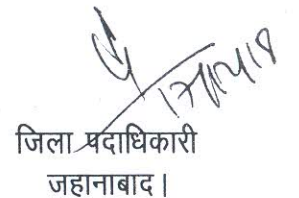 जिला पदाधिकारी
जहानाबाद।